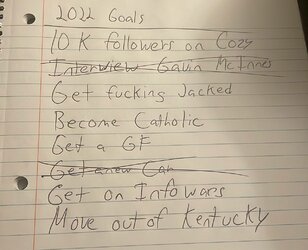 2022 Goals
10K followers on Cozy
Interview Gavin McInnes
Get fucking Jacked
Become Catholic
Get a GF
Get a new Car
Get on Infowars
Move out of Kentucky